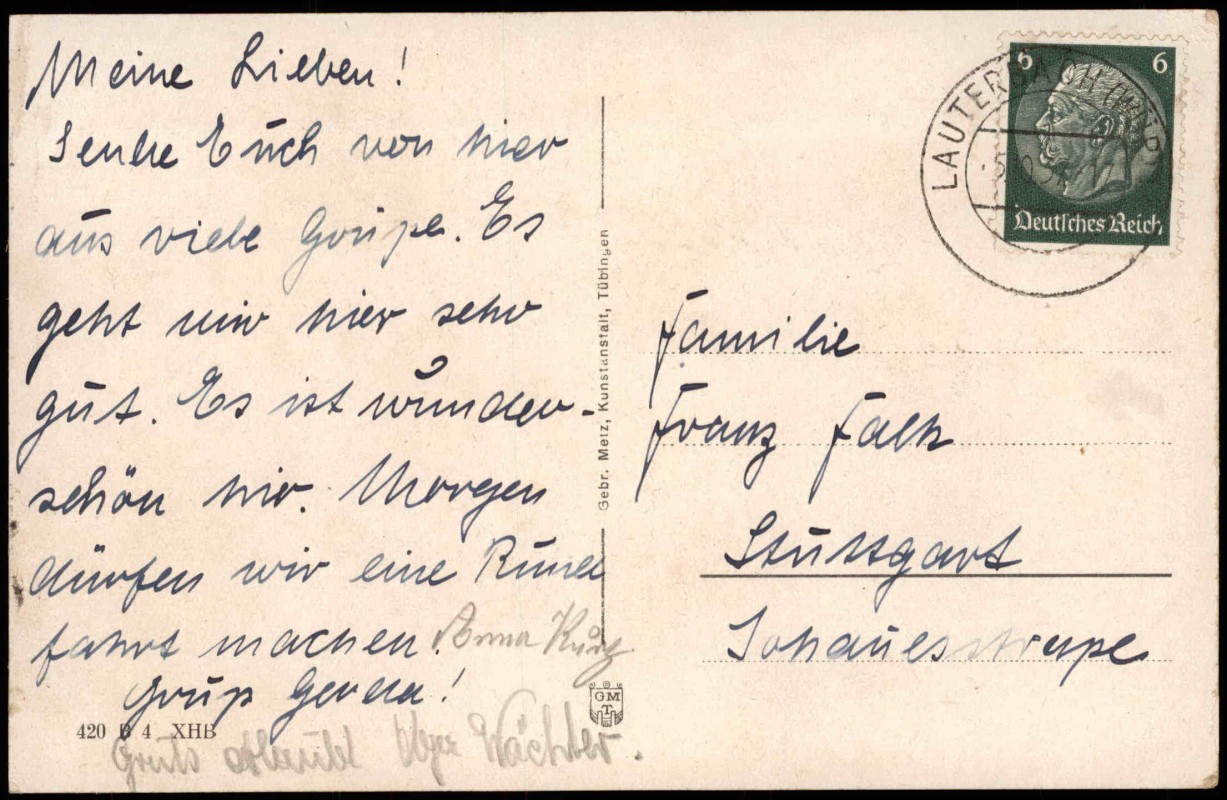 Meine Lieben!
Sende Euch von hier
aus viele Grüße. Es
geht mir hier sehr
gut. Es ist wunder-
schön hier. Morgen
dürfen wir eine Rund
fahrt machen.
Gruß Gerda!
Anna Kurz
Wächter.
420 B 4 XHB
Gebr. Metz, Kunstanstalt, Tübingen
GMT
LAUTERBACH (WÜRTT)
6
6
Deutsches Reich
Familie
Franz Falk
Stuttgart
Johannesstraße